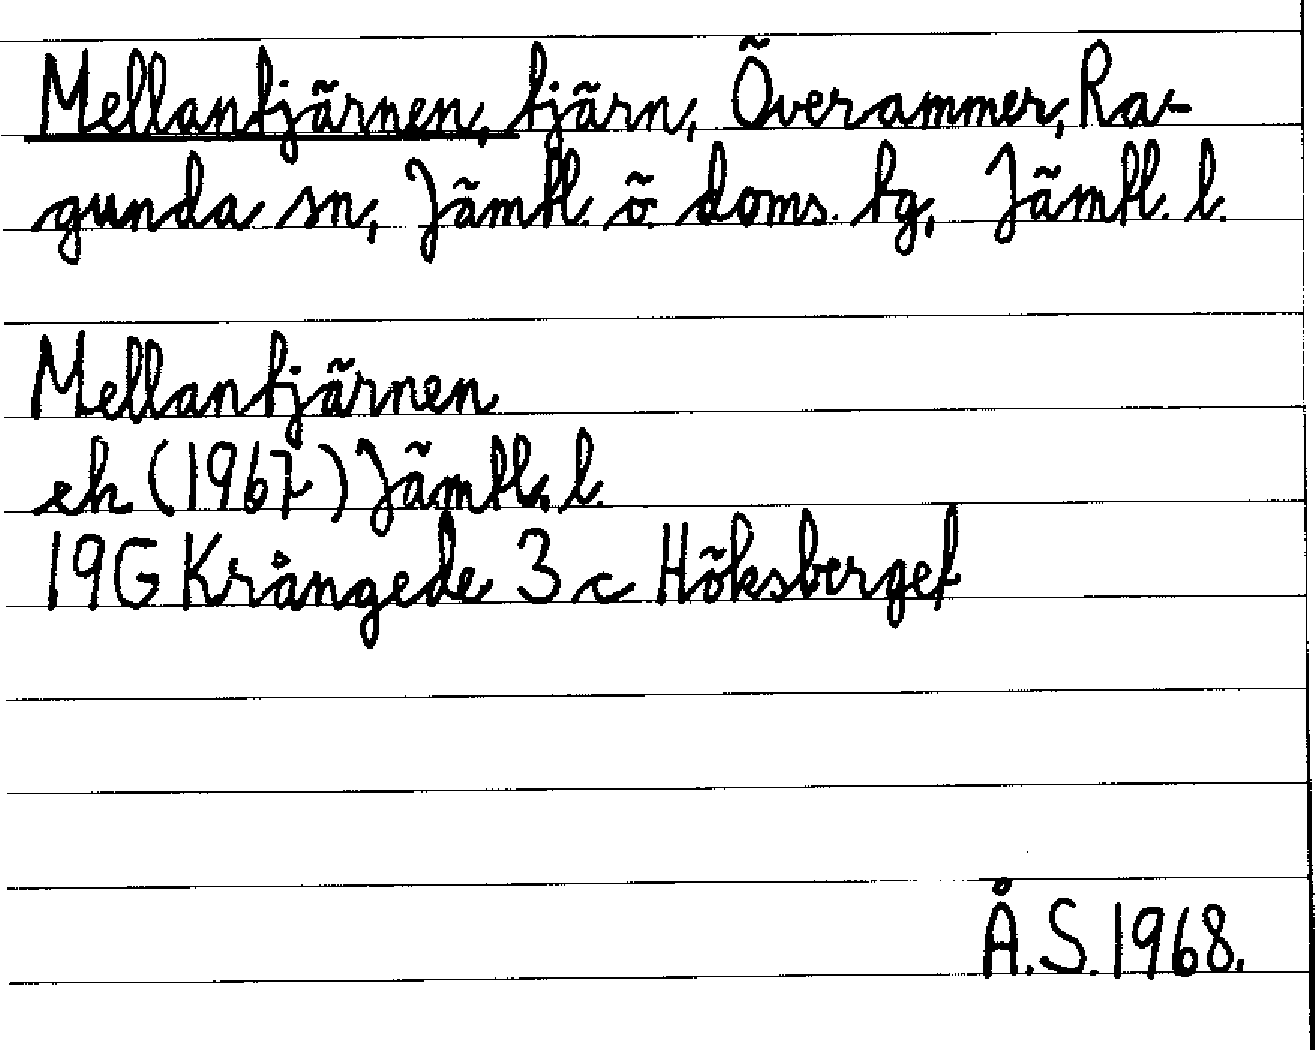 Mellantjärnen, tjärn, Överammer, Ra-
gunda sn, Jämtl. ö. doms. tg, Jämtl. l.
Mellantjärnen
ek (1967) Jämtl. l.
19G Krångede 3 c Höksberget
Å.S. 1968.